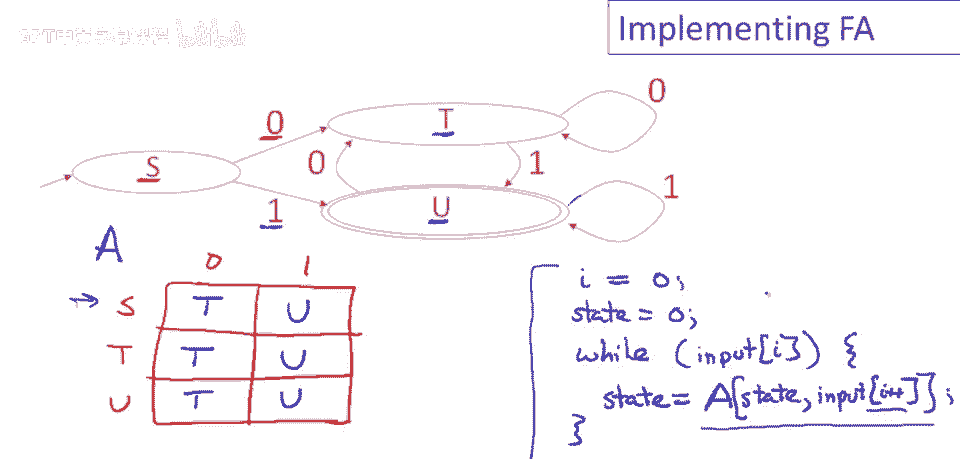 Implementing FA
0
T
0
S
0
1
1
1
U
A
0 1
S T U
T T U
U T U
i = 0;
state = 0;
while (input[i]) {
state = A[state, input[i++]];
}